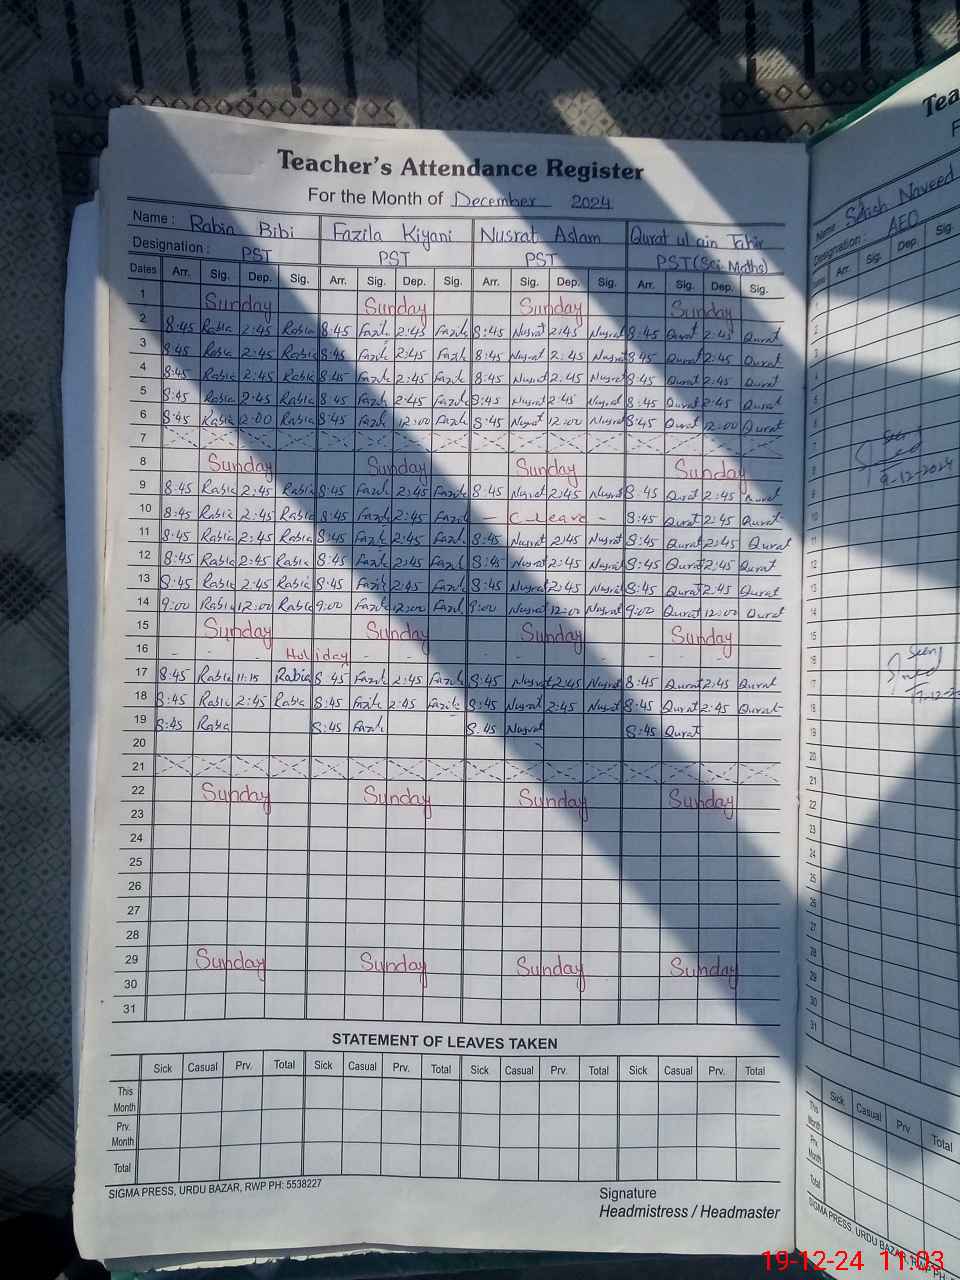 Teacher's Attendance Register
For the Month of December 2024
Name : Rabia Bibi Fazila Kiyani Nusrat Aslam Qurat ul ain Tahir
Designation : PST PST PST PST (Sci Maths)
Dates Arr. Sig. Dep. Sig. Arr. Sig. Dep. Sig. Arr. Sig. Dep. Sig. Arr. Sig. Dep. Sig.
1 Sunday Sunday Sunday Sunday
2 8:45 Rabia 2:45 Rabia 8:45 Fazila 2:45 Fazila 8:45 Nusrat 2:45 Nusrat 8:45 Qurat 2:45 Qurat
3 8:45 Rabia 2:45 Rabia 8:45 Fazila 2:45 Fazila 8:45 Nusrat 2:45 Nusrat 8:45 Qurat 2:45 Qurat
4 8:45 Rabia 2:45 Rabia 8:45 Fazila 2:45 Fazila 8:45 Nusrat 2:45 Nusrat 8:45 Qurat 2:45 Qurat
5 8:45 Rabia 2:45 Rabia 8:45 Fazila 2:45 Fazila 8:45 Nusrat 2:45 Nusrat 8:45 Qurat 2:45 Qurat
6 8:45 Rabia 12:00 Rabia 8:45 Fazila 12:00 Fazila 8:45 Nusrat 12:00 Nusrat 8:45 Qurat 12:00 Qurat
7
8 Sunday Sunday Sunday Sunday
9 8:45 Rabia 2:45 Rabia 8:45 Fazila 2:45 Fazila 8:45 Nusrat 2:45 Nusrat 8:45 Qurat 2:45 Qurat
10 8:45 Rabia 2:45 Rabia 8:45 Fazila 2:45 Fazila C-Leave - 8:45 Qurat 2:45 Qurat
11 8:45 Rabia 2:45 Rabia 8:45 Fazila 2:45 Fazila 8:45 Nusrat 2:45 Nusrat 8:45 Qurat 2:45 Qurat
12 8:45 Rabia 2:45 Rabia 8:45 Fazila 2:45 Fazila 8:45 Nusrat 2:45 Nusrat 8:45 Qurat 2:45 Qurat
13 8:45 Rabia 2:45 Rabia 8:45 Fazila 2:45 Fazila 8:45 Nusrat 2:45 Nusrat 8:45 Qurat 2:45 Qurat
14 9:00 Rabia 12:00 Rabia 9:00 Fazila 12:00 Fazila 9:00 Nusrat 12:00 Nusrat 9:00 Qurat 12:00 Qurat
15 Sunday Sunday Sunday Sunday
16 - - - Holiday - - - - - - - - - -
17 8:45 Rabia 11:15 Rabia 8:45 Fazila 2:45 Fazila 8:45 Nusrat 2:45 Nusrat 8:45 Qurat 2:45 Qurat
18 8:45 Rabia 2:45 Rabia 8:45 Fazila 2:45 Fazila 8:45 Nusrat 2:45 Nusrat 8:45 Qurat 2:45 Qurat
19 8:45 Rabia 8:45 Fazila 8:45 Nusrat 8:45 Qurat
20
21
22 Sunday Sunday Sunday Sunday
23
24
25
26
27
28
29 Sunday Sunday Sunday Sunday
30
31
STATEMENT OF LEAVES TAKEN
Sick Casual Prv. Total Sick Casual Prv. Total Sick Casual Prv. Total Sick Casual Prv. Total
This Month
Prv. Month
Total
SIGMA PRESS, URDU BAZAR, RWP PH: 5538227
Signature
Headmistress / Headmaster
Name : Naveed
Designation : AEO
Arr. Sig. Dep. Sig.
1
2
3
4
5
6
7
8
9
10
11
12
13
14
15
16
17
18
19
20
21
22
23
24
25
26
27
28
29
30
31
Seen
9-12-2024
Seen
Sick Casual Prv. Total
This Month
Prv. Month
Total
SIGMA PRESS, URDU BAZAR, RWP PH
19-12-24 11:03